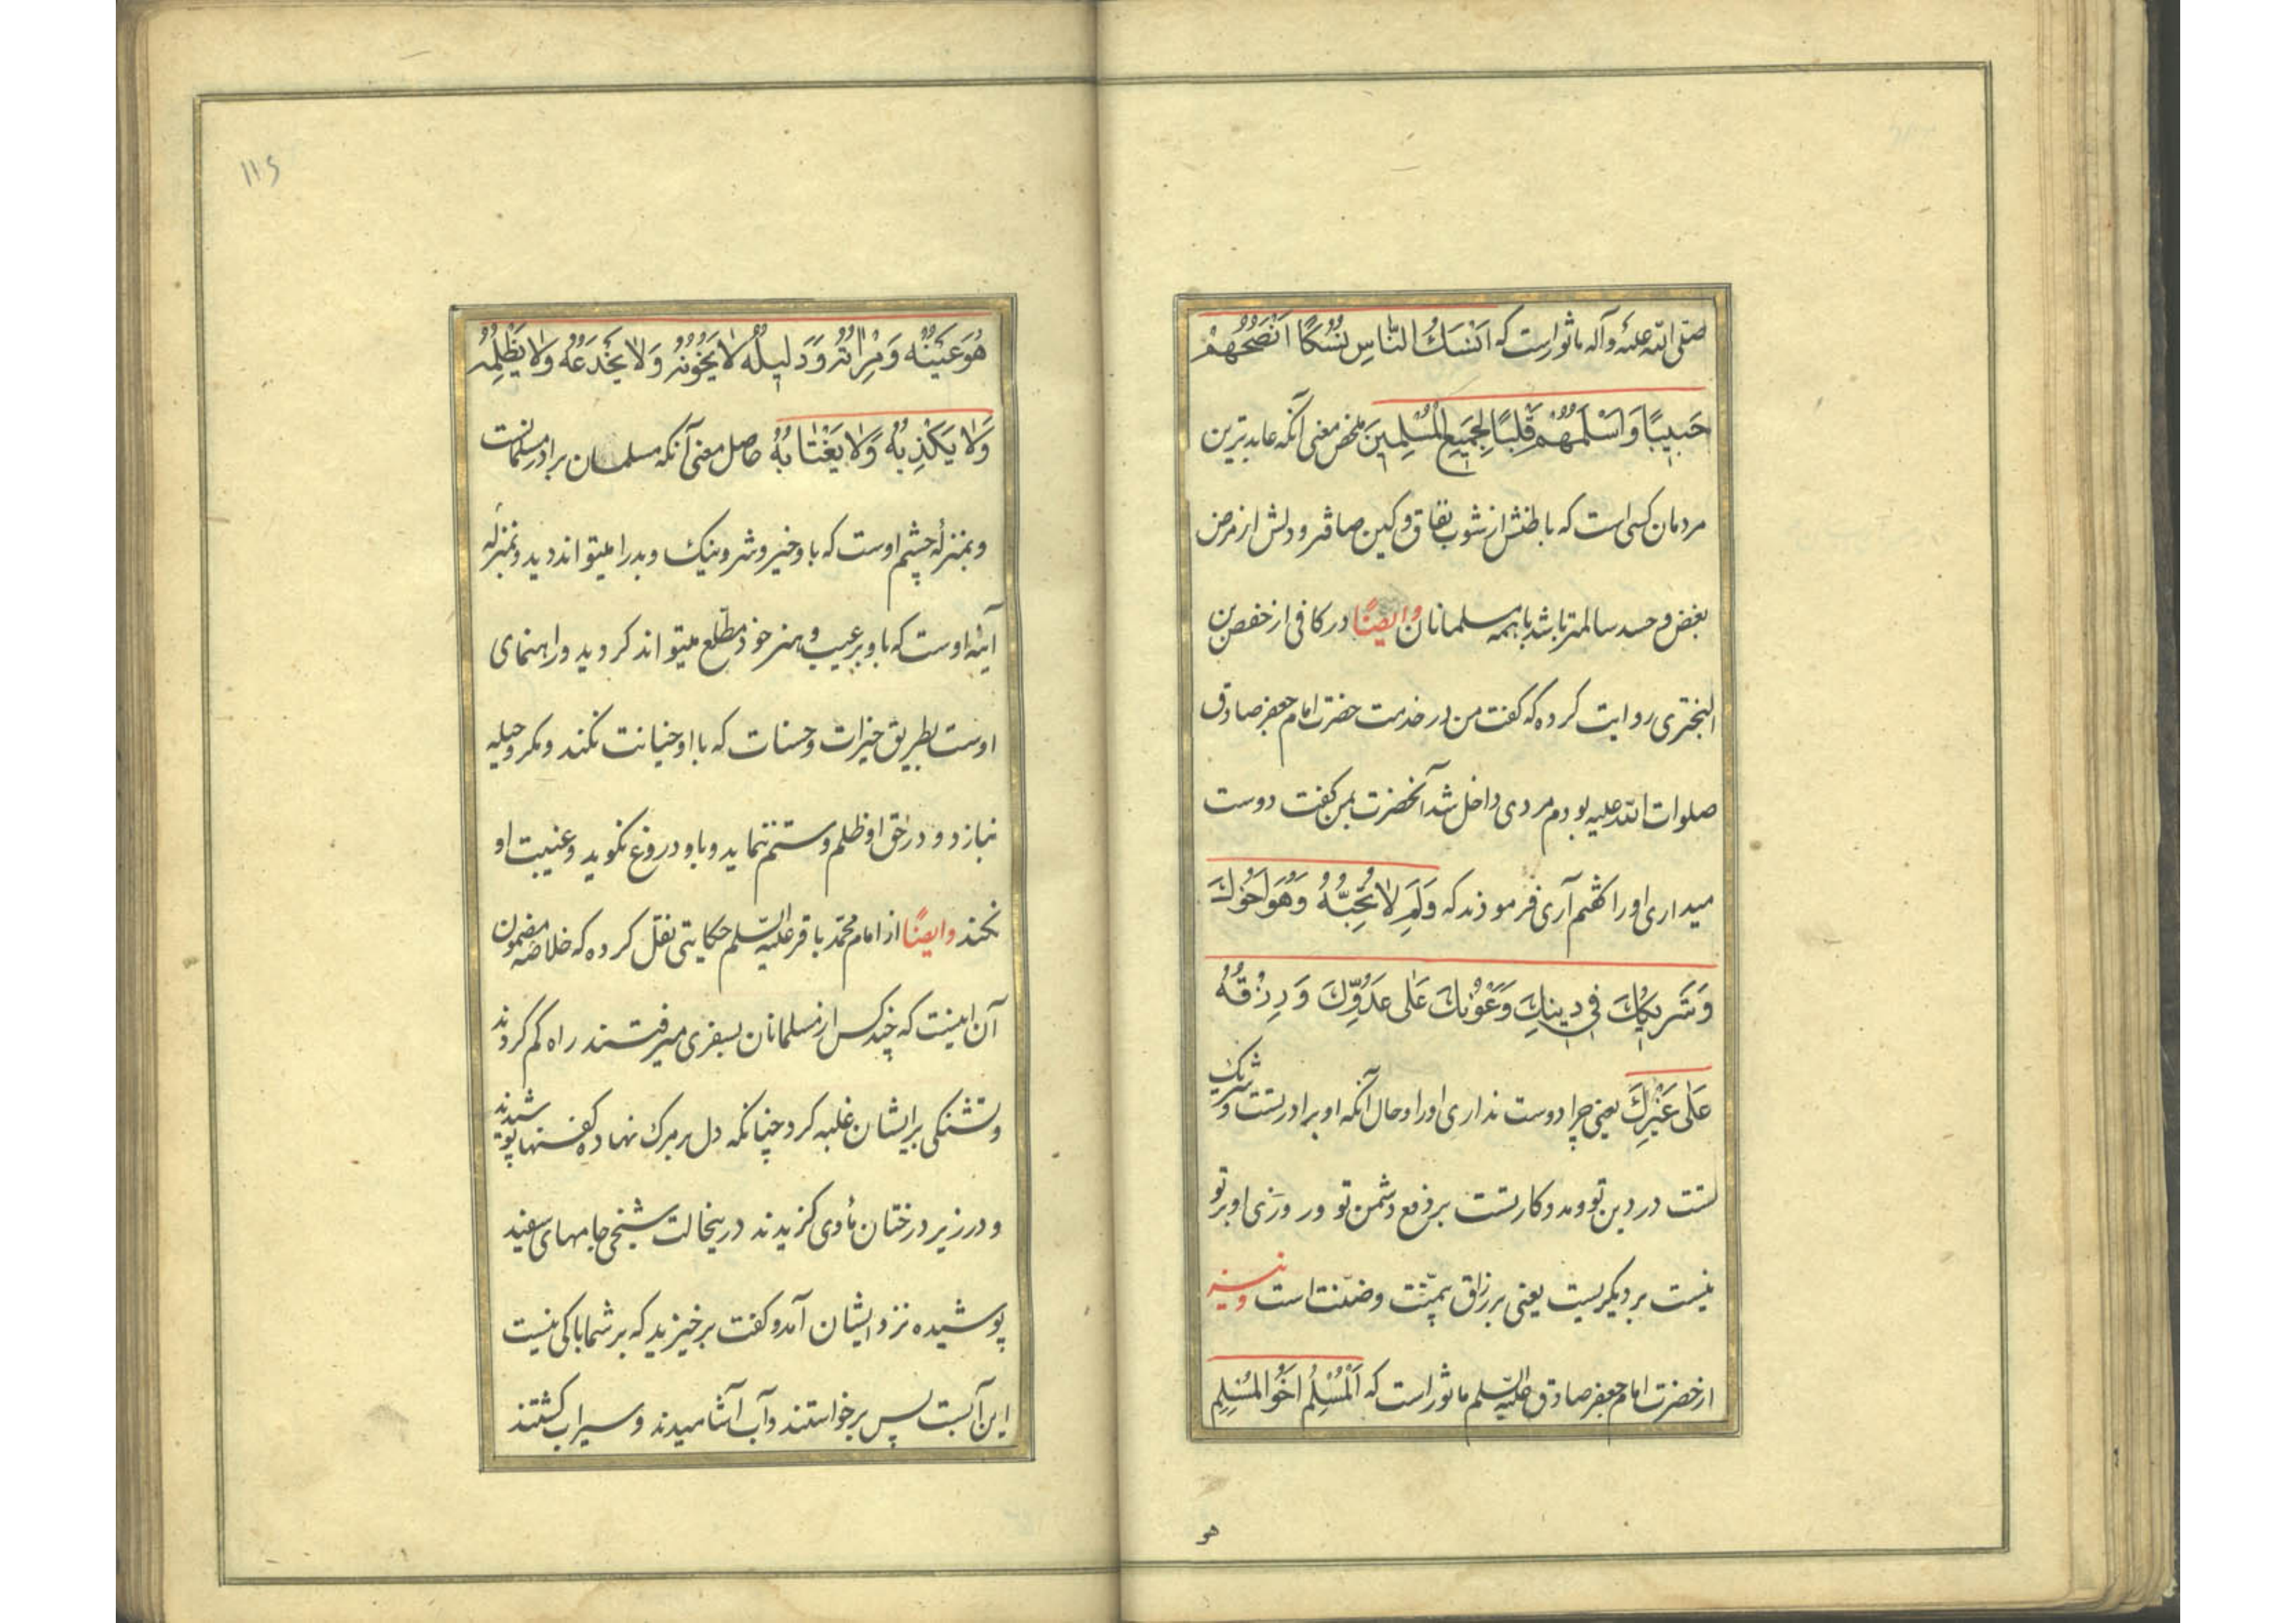 صلّی اللّه علیه وآله ماثور است که اَنْسَكُ النّاسِ نُسُكًا اَنْصَحُهُمْ
حَبیبًا وَاَسْلَمُهُمْ قَلْبًا لِجَمیعِ الْمُسْلِمینَ ملخص معنی آنکه عابدترین
مردمان کسی است که باطنش از شوب نفاق و کین صافتر و دلش از مرض
بغض و حسد سالمتر باشد با همه مسلمانان وایضًا در کافی از حفص بن
البختری روایت کرده که کفت من در خدمت حضرت امام جعفر صادق
صلوات اللّه علیه بودم مردی داخل شد آنحضرت بمن کفت دوست
میداری او را کفتم آری فرمودند که وَلَمِ لا تُحِبُّهُ وَهُوَ اَخُوكَ
وَشَریكُكَ فی دینِكَ وَعَوْنُكَ عَلی عَدُوِّكَ وَرِزْقُهُ
عَلی غَیْرِكَ یعنی چرا دوست نداری او را و حال آنکه او برادر تست و شریک
تست در دین تو و مددکار تست بر دفع دشمن تو و روزی او بر تو
نیست بر دیکریست یعنی بر رزاق بیمنّت و ضنّنت است ونیز
از حضرت امام جعفر صادق علیه السّلم ماثور است که اَلْمُسْلِمُ اَخُو الْمُسْلِمِ
هو
۱۱۶
هُوَ عَیْنُهُ وَمِرْاتُهُ وَدَلیلُهُ لا یَخُونُهُ وَلا یَخْدَعُهُ وَلا یَظْلِمُهُ
وَلا یَكْذِبُهُ وَلا یَغْتابُهُ حاصل معنی آنکه مسلمان برادر مسلمانست
و بمنزلهٔ چشم اوست که باو خیر و شر و نیک و بد را میتواند دید و بمنزلهٔ
آینهٔ اوست که باو بر عیب و هنر خود مطلع میتواند کردید و راهنمای
اوست بطریق خیرات و حسنات که با او خیانت نکند و مکر و حیله
نبازد و در حق او ظلم و ستم ننماید و باو دروغ نکوید و غیبت او
نکند وایضًا از امام محمّد باقر علیه السّلم حکایتی نقل کرده که خلاصه مضمون
آن اینست که چند کس از مسلمانان بسفری میرفتند راه کم کردند
و تشنکی بر ایشان غلبه کرد چنانکه دل بر مرک نهاده کفنها پوشیدند
و در زیر درختان مأوی کزیدند در ینحالت شیخی جامهای سفید
پوشیده نزد ایشان آمد و کفت برخیزید که بر شما باکی نیست
این آبست پس برخواستند و آب آشامیدند و سیراب کشتند